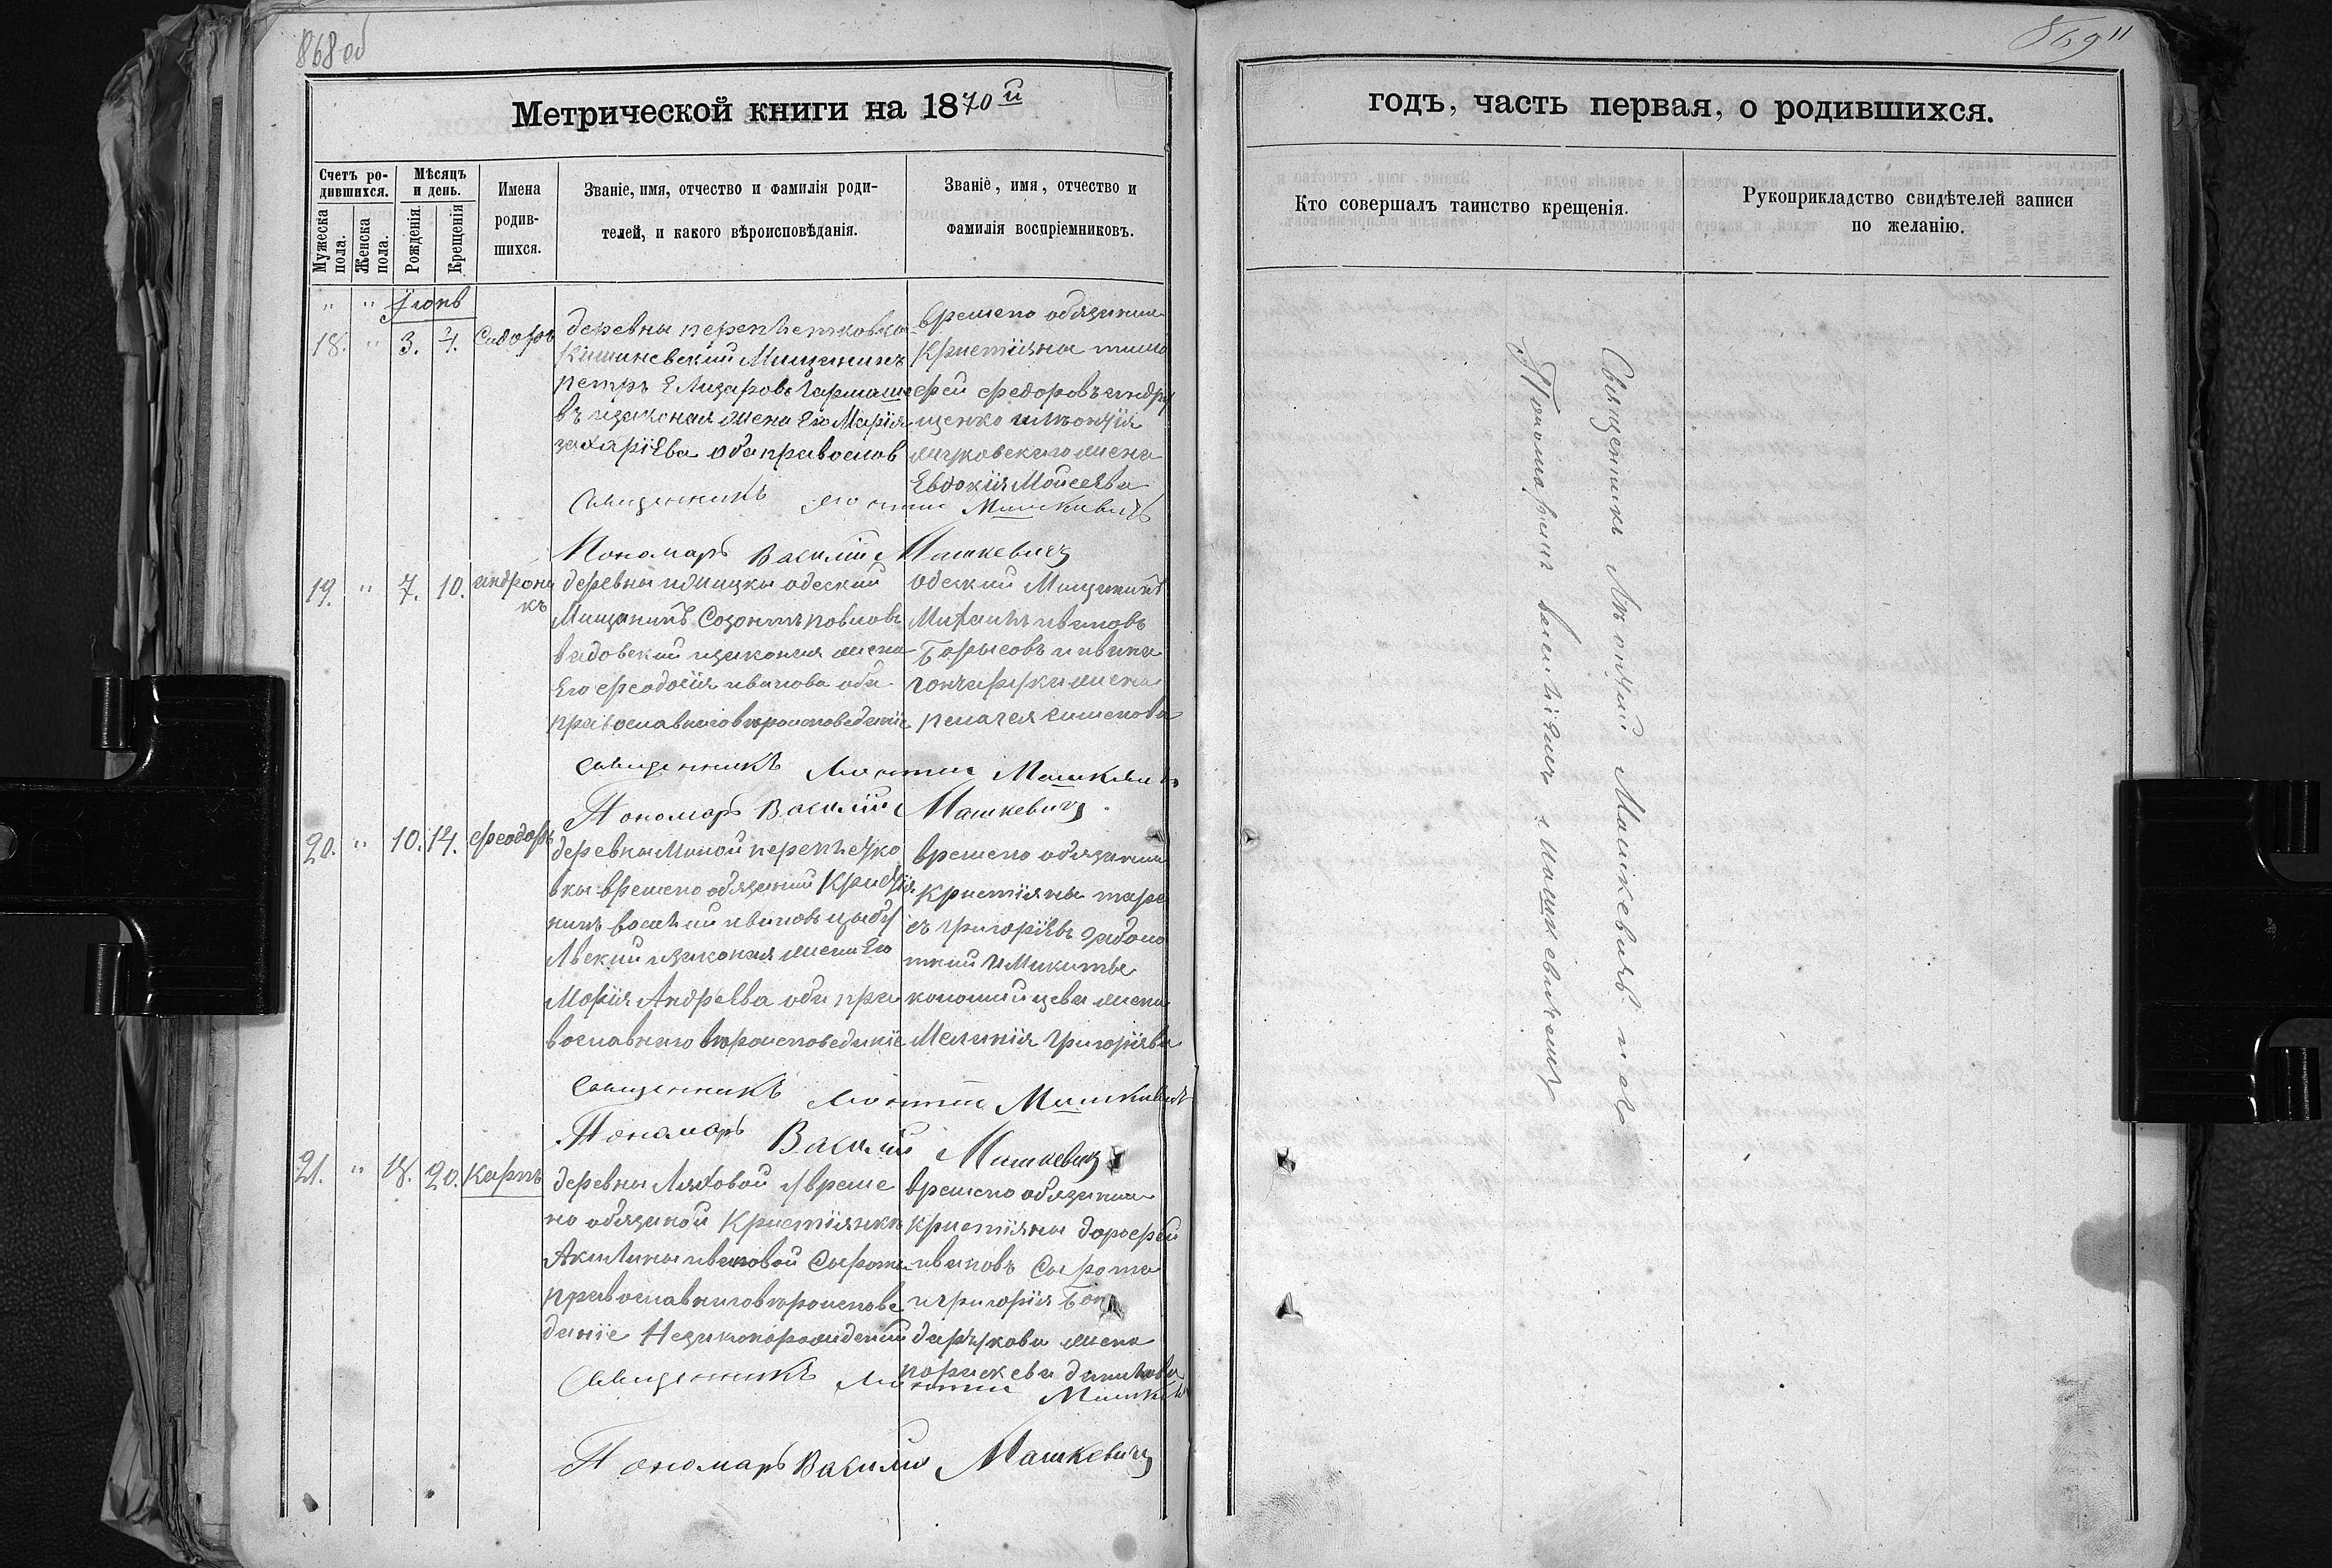 868 об
Метрической книги на 1870й
Счетъ ро-
дившихся.
Мужеска пола.
Женска пола.
Мѣсяцъ
и день.
Рожденія.
Крещенія
Имена
родив-
шихся.
Званіе, имя, отчество и фамилія роди-
телей, и какого вѣроисповѣданія.
Званіе, имя, отчество и
фамилія воспріемниковъ.
" "
18. " 3. 4. Сидоръ
деревны
Кишиневский Мищанинъ
петръ Елизаровъ
въ изаконая жена Его Марія
захаріева оба православ
времено обязании
Кристіяне тимо
фей федоровъ андру
щенко илѣонтія
жена
Евдокія Моисеева
Священникъ Леонтий Машкевичъ
Пономарь Василій Машкевичъ
19. " 7. 10. андрони
къ
деревны одеский
Мищанинъ Созонтъ повловъ
изаконая жена
Его феодосія иванова оба
православнаго вѣроисповеданіе
одеский Мищанинъ
Михаилъ ивановъ
Борысовъ и ивана
гончарука жена
пелагея
Священникъ Леонтий Машкевичъ
Пономарь Василій Машкевичъ.
20. " 10. 14. феодоръ
деревны Малой
вкы времено обязаний Кристія
нинъ василий ивановъ цыбу
лвский изаконая жена Его
Марія Андреева оба пра
вославнаго вѣроисповеданіе
времено обязании
Кристіяны тара
съ григоріевъ
жена
Меланія григоріева
Священникъ Леонтий Машкевичъ
Пономарь Василий Машкевичъ
21. " 18. 20. Карпъ
деревны Ляховой время
но обязаной Кристіянки
Акилины ивановой Сырота
православнаго вѣроисповѣ
даніе Незаконорожденый
времено обязании
кристіяны дорофей
ивановъ Сырота
и григорія Бон
дарукова жена
параскева данилова
Священникъ Леонтий Машкевичъ
Пономарь Василий Машкевичъ
869"
годъ, часть первая, о родившихся.
Кто совершалъ таинство крещенія.
Рукоприкладство свидѣтелей записи
по желанію.
Священникъ Лѣонтий Машкевичъ
Пономаремъ василіемъ Машкевичомъ